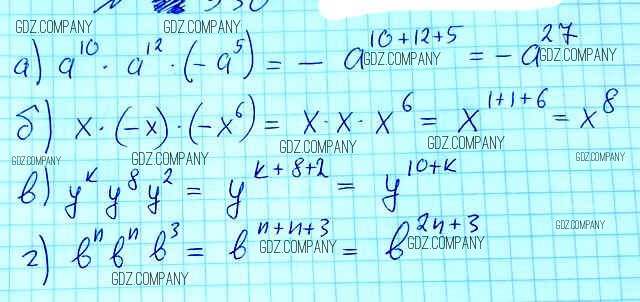 GDZ.COMPANY GDZ.COMPANY
а) a^10 · a^12 · (-a^5) = - a^(10+12+5) = - a^27
GDZ.COMPANY GDZ.COMPANY GDZ.COMPANY
б) x · (-x) · (-x^6) = x · x · x^6 = x^(1+1+6) = x^8
GDZ.COMPANY GDZ.COMPANY GDZ.COMPANY GDZ.COMPANY GDZ.COMPANY
в) y^k y^8 y^2 = y^(k+8+2) = y^(10+k)
GDZ.COMPANY
г) b^n b^n b^3 = b^(n+n+3) = b^(2n+3)
GDZ.COMPANY GDZ.COMPANY
GDZ.COMPANY